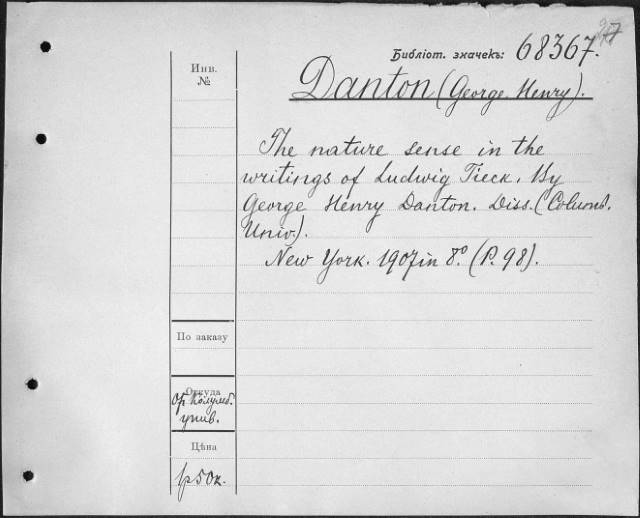 Библіот. значекъ: 68367.
Инв.
№
Danton (George Henry).
The nature sense in the
writings of Ludwig Tieck. By
George Henry Danton. Diss. (Columb.
Univ.).
New York. 1907 in 8º. (P. 98).
По заказу
Откуда
От Колумб.
унив.
Цѣна
1р 50к.